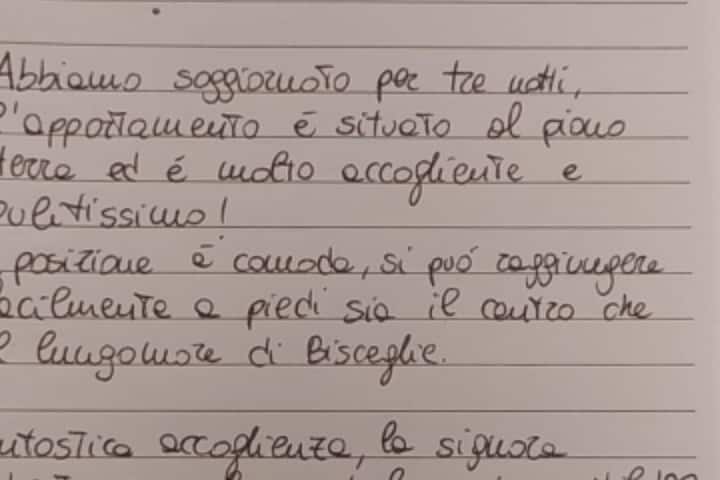 Abbiamo soggiornato per tre notti,
l'appartamento è situato al piano
terra ed é molto accogliente e
pulitissimo!
posizione è comoda, si può raggiungere
facilmente a piedi sia il centro che
il lungomare di Bisceglie.
antastica accoglienza, la signora